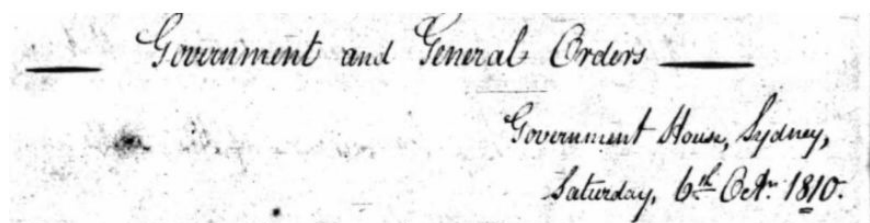 Government and General Orders
Government House, Sydney,
Saturday, 6th Octr. 1810.